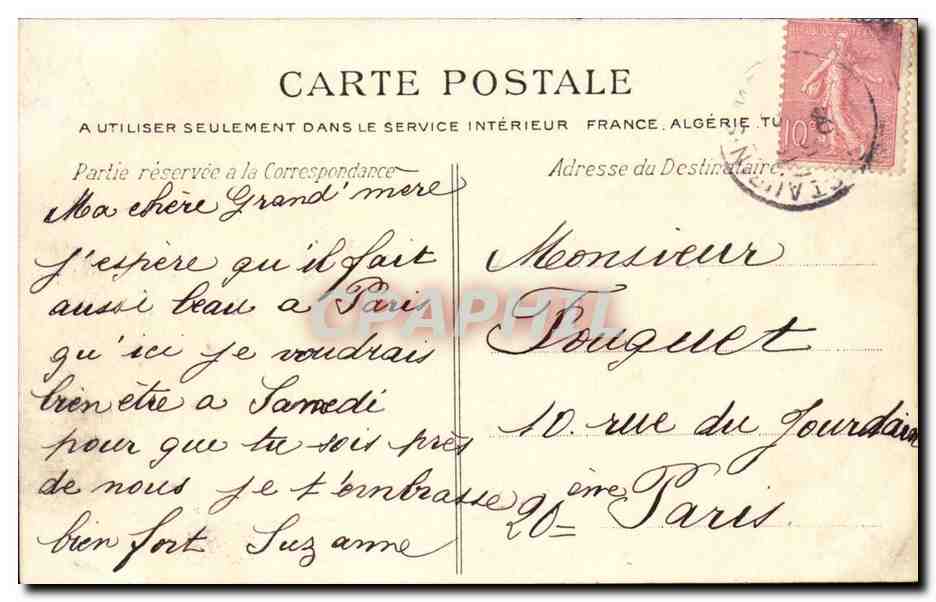 CARTE POSTALE
A UTILISER SEULEMENT DANS LE SERVICE INTÉRIEUR FRANCE. ALGÉRIE. TU
Partie réservée à la Correspondance
Adresse du Destinataire
10c
Ma chère Grand'mere
j'espère qu'il fait
aussi beau a Paris
qu'ici je voudrais
bien être a Samedi
pour que tu sois près
de nous je t'embrasse
bien fort Suzanne
Monsieur
Fouquet
10. rue du Jourdain
20ème Paris.
CPAPHIL